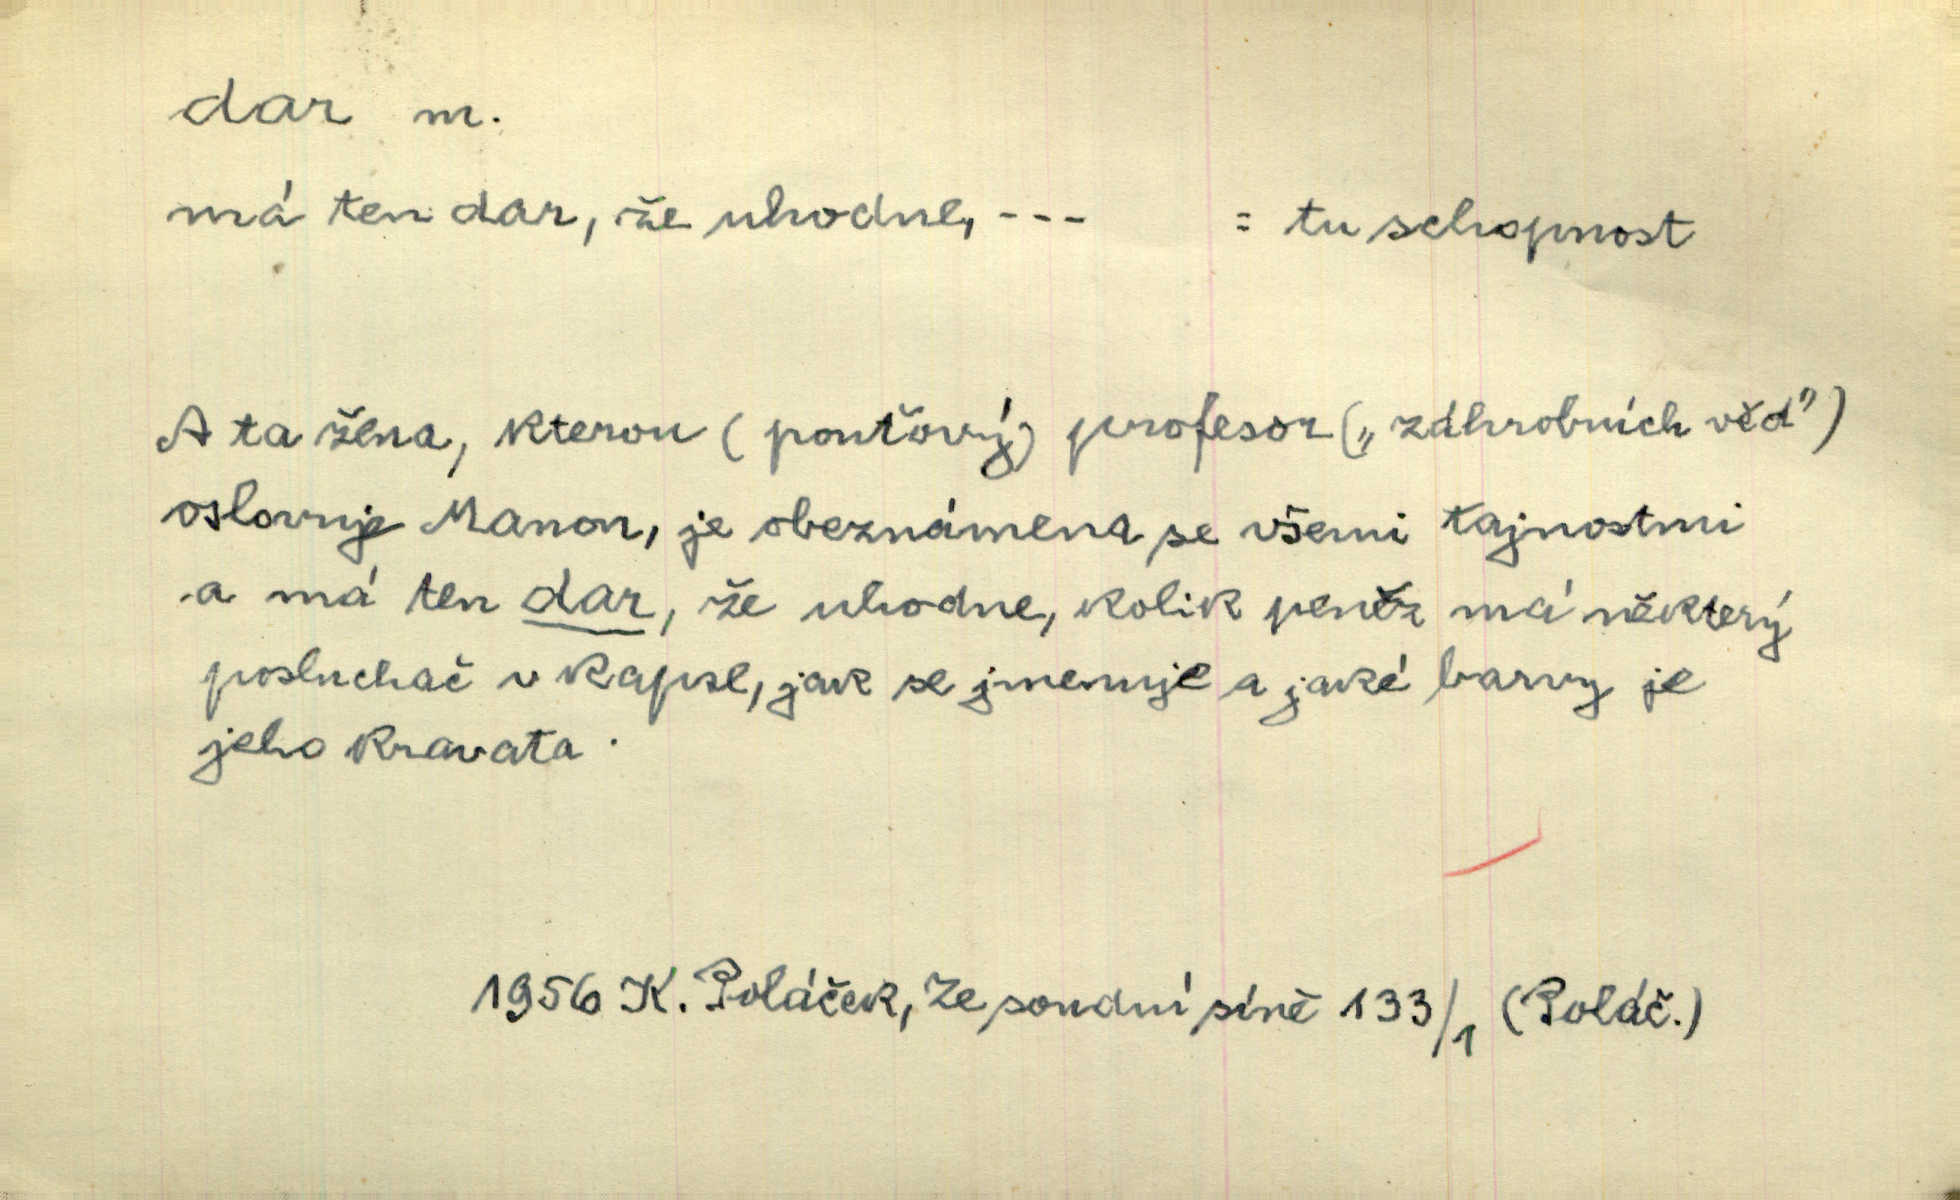 dar m.
má ten dar, že uhodne, --- = tu schopnost
A ta žena, kterou (pouťový) profesor („záhrobních věd")
oslovuje Manon, je obeznámena se všemi tajnostmi
a má ten dar, že uhodne, kolik peněz má některý
posluchač v kapse, jak se jmenuje a jaké barvy je
jeho kravata.
1956 K. Poláček, Ze soudní síně 133/1 (Poláč.)